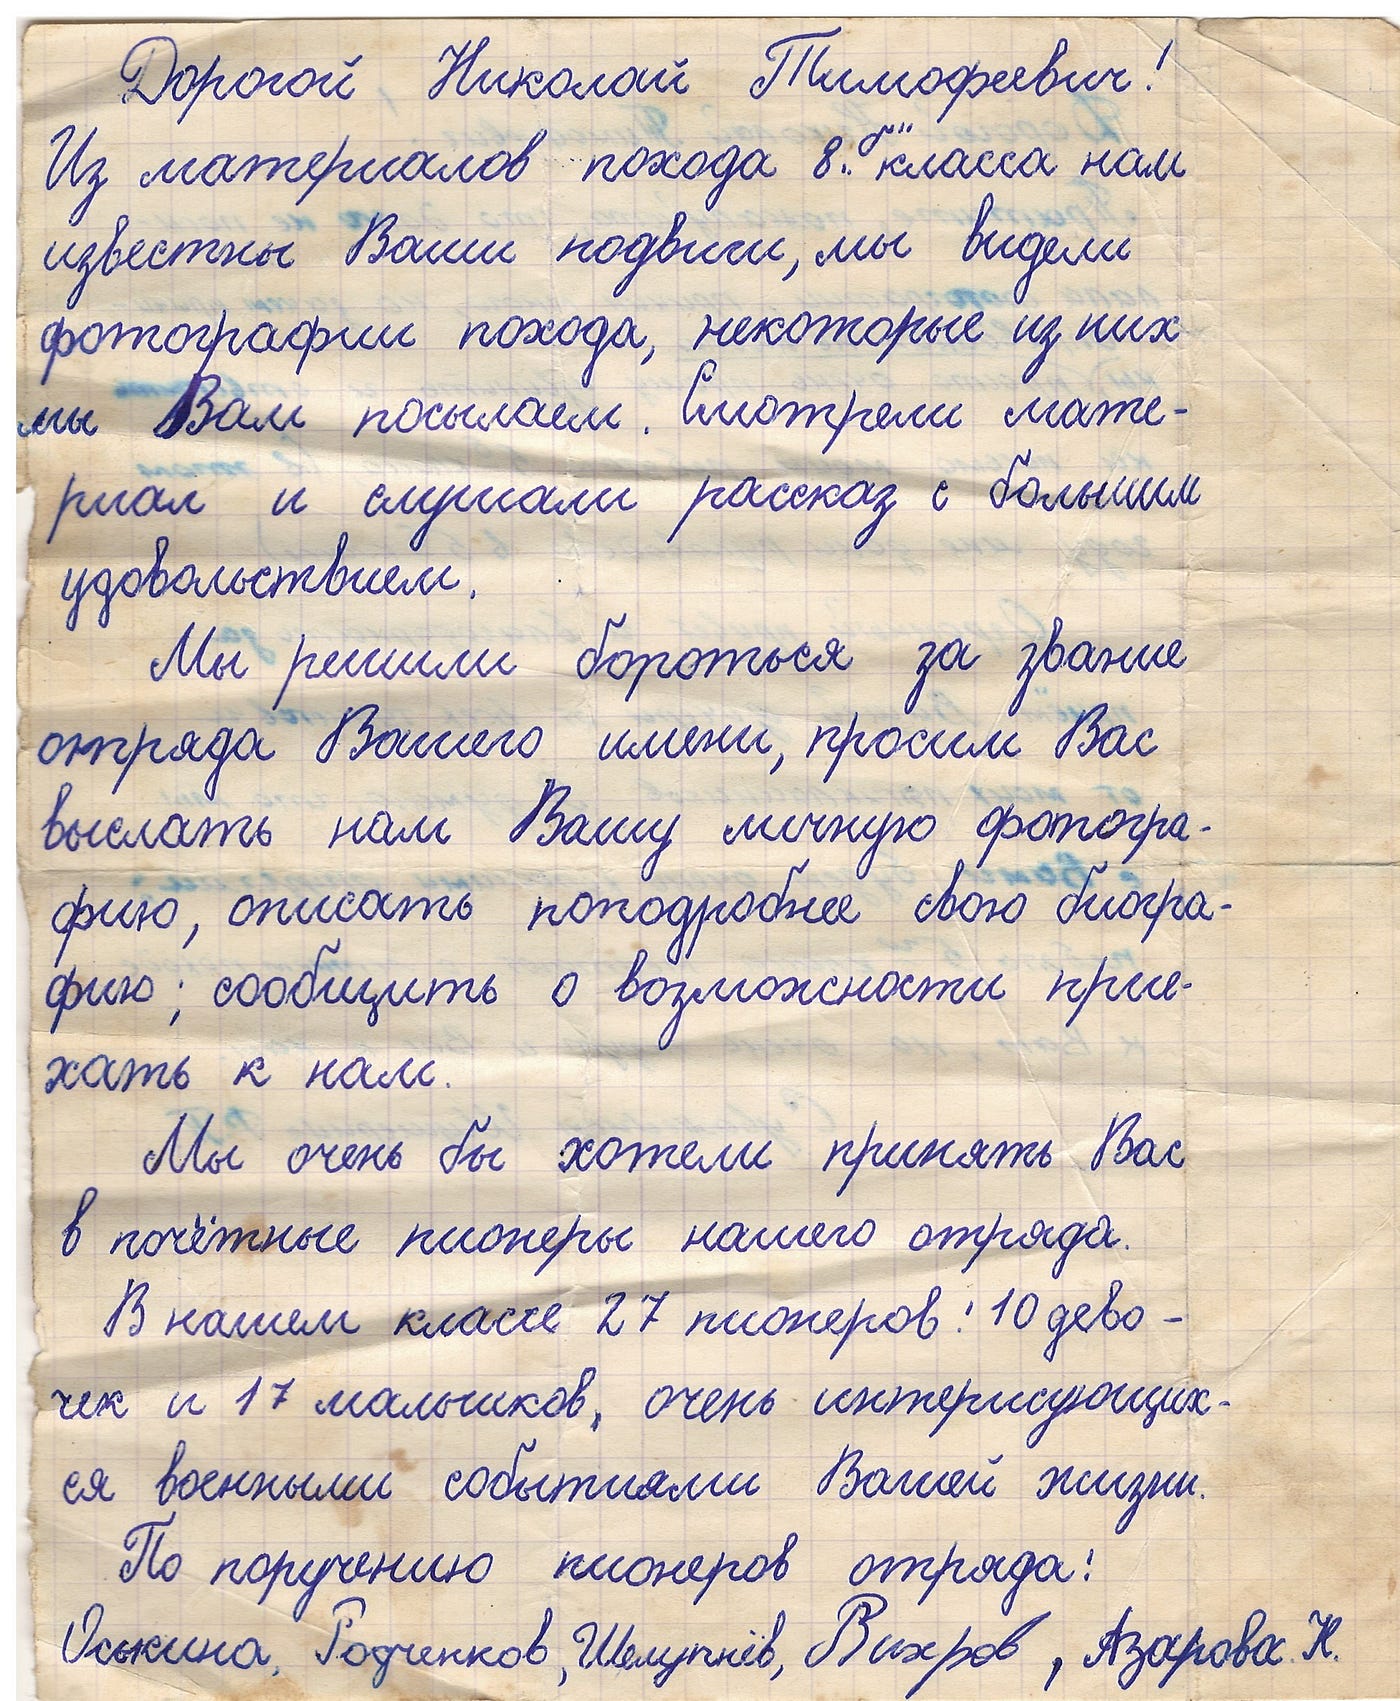 Дорогой Николай Тимофеевич!
Из материалов похода 8 „б" класса нам
известны Ваши подвиги, мы видели
фотографии похода, некоторые из них
мы Вам посылаем. Смотрели мате-
риал и слушали рассказ с большим
удовольствием.
Мы решили бороться за звание
отряда Вашего имени, просим Вас
выслать нам Вашу личную фотогра-
фию, описать поподробнее свою биогра-
фию; сообщить о возможности прие-
хать к нам.
Мы очень бы хотели принять Вас
в почётные пионеры нашего отряда.
В нашем классе 27 пионеров: 10 дево-
чек и 17 мальчиков, очень интерисующих-
ся военными событиями Вашей жизни.
По поручению пионеров отряда:
Оськина, Родченков, Шелупнёв, Вихров, Азарова Н.